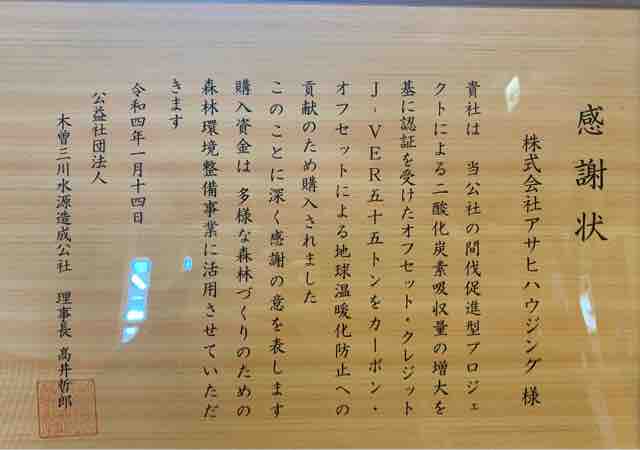 感謝状
株式会社アサヒハウジング 様
貴社は 当公社の間伐促進型プロジェ
クトによる二酸化炭素吸収量の増大を
基に認証を受けたオフセット・クレジット
J‐VER五十五トンをカーボン・
オフセットによる地球温暖化防止への
貢献のため購入されました
このことに深く感謝の意を表します
購入資金は 多様な森林づくりのための
森林環境整備事業に活用させていただ
きます
令和四年一月十四日
公益社団法人
木曽三川水源造成公社 理事長 高井哲郎